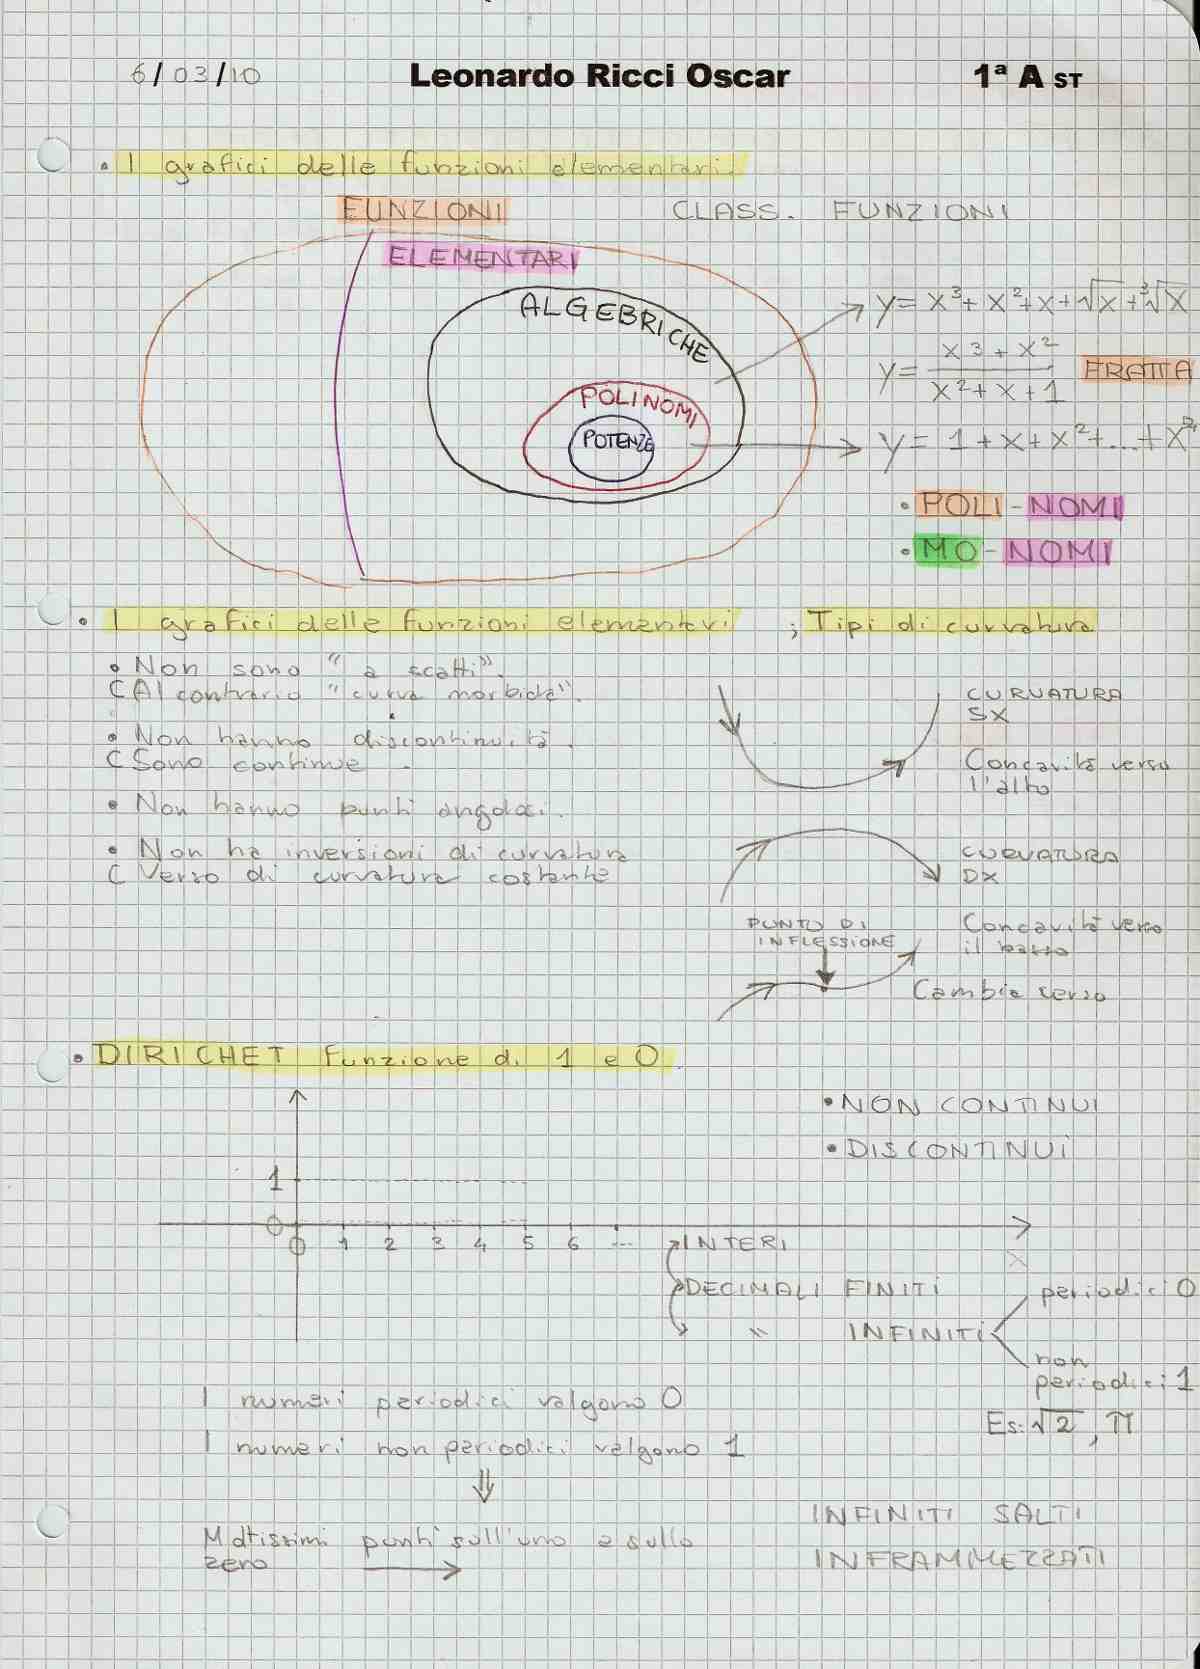 6/03/10 Leonardo Ricci Oscar 1ª A ST
• I grafici delle funzioni elementari.
FUNZIONI CLASS. FUNZIONI
ELEMENTARI
ALGEBRICHE
POLINOMI
POTENZE
y= x³+ x²+x+√x+³√x
y= x³+x² / x²+x+1 FRATTA
y= 1+x+x²+...+x²⁴
• POLI-NOMI
• MO-NOMI
• I grafici delle funzioni elementari ; Tipi di curvatura
• Non sono "a scatti".
C Al contrario "curva morbida".
• Non hanno discontinuità.
C Sono continue.
• Non hanno punti angolosi.
• Non ha inversioni di curvatura
C Verso di curvatura costante
CURVATURA
SX
Concavità verso
l'alto
CURVATURA
DX
Concavità verso
il basso
PUNTO DI
INFLESSIONE
Cambia verso
• DIRICHET Funzione di 1 e 0.
• NON CONTINUI
• DISCONTINUI
1
0
0 1 2 3 4 5 6 ...
x
INTERI
DECIMALI FINITI
" INFINITI
periodici 0
non
periodici 1
Es: √2, π
I numeri periodici valgono 0
I numeri non periodici valgono 1
⇓
Moltissimi punti sull'uno e sullo
zero →
INFINITI SALTI
INFRAMMEZZATI